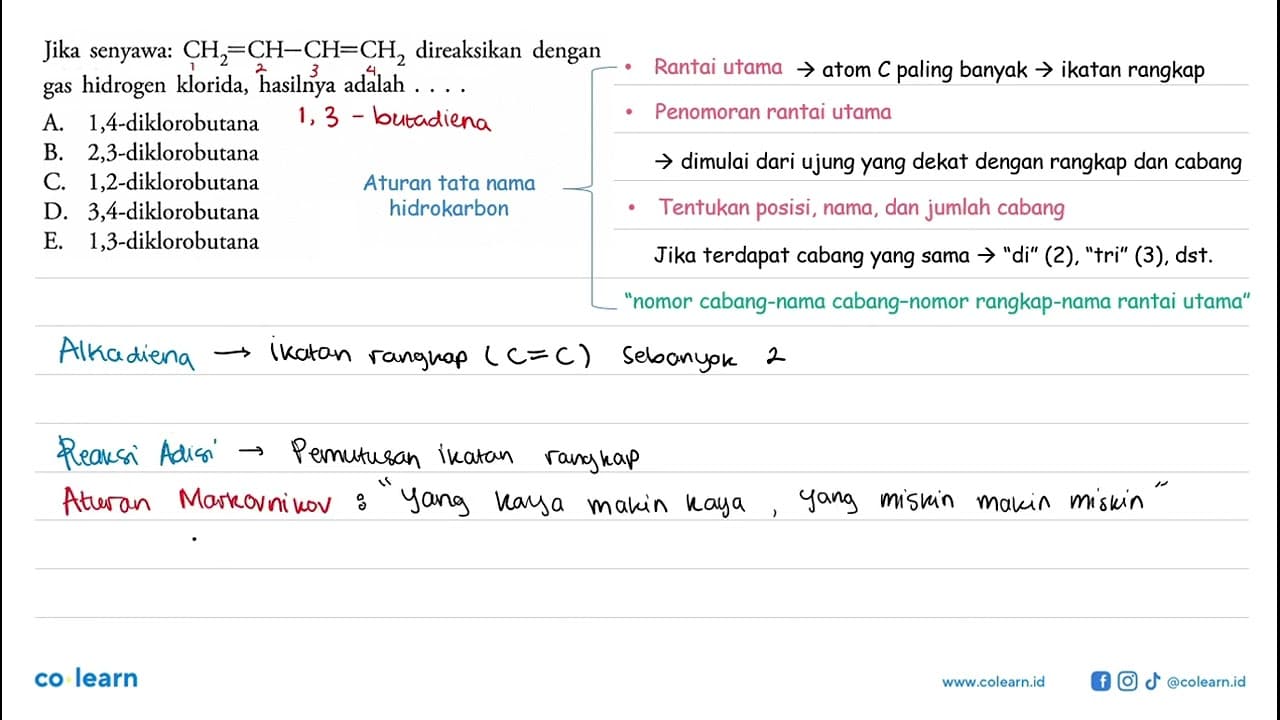 Jika senyawa: CH₂=CH−CH=CH₂ direaksikan dengan
1 2 3 4
gas hidrogen klorida, hasilnya adalah . . . .
A. 1,4-diklorobutana
B. 2,3-diklorobutana
C. 1,2-diklorobutana
D. 3,4-diklorobutana
E. 1,3-diklorobutana
1, 3 - butadiena
Aturan tata nama
hidrokarbon
• Rantai utama → atom C paling banyak → ikatan rangkap
• Penomoran rantai utama
→ dimulai dari ujung yang dekat dengan rangkap dan cabang
• Tentukan posisi, nama, dan jumlah cabang
Jika terdapat cabang yang sama → "di" (2), "tri" (3), dst.
"nomor cabang-nama cabang-nomor rangkap-nama rantai utama"
Alkadiena → ikatan rangkap (C=C) sebanyak 2
Reaksi Adisi → Pemutusan ikatan rangkap
Aturan Markovnikov : "yang kaya makin kaya, yang miskin makin miskin"
co learn
www.colearn.id
@colearn.id